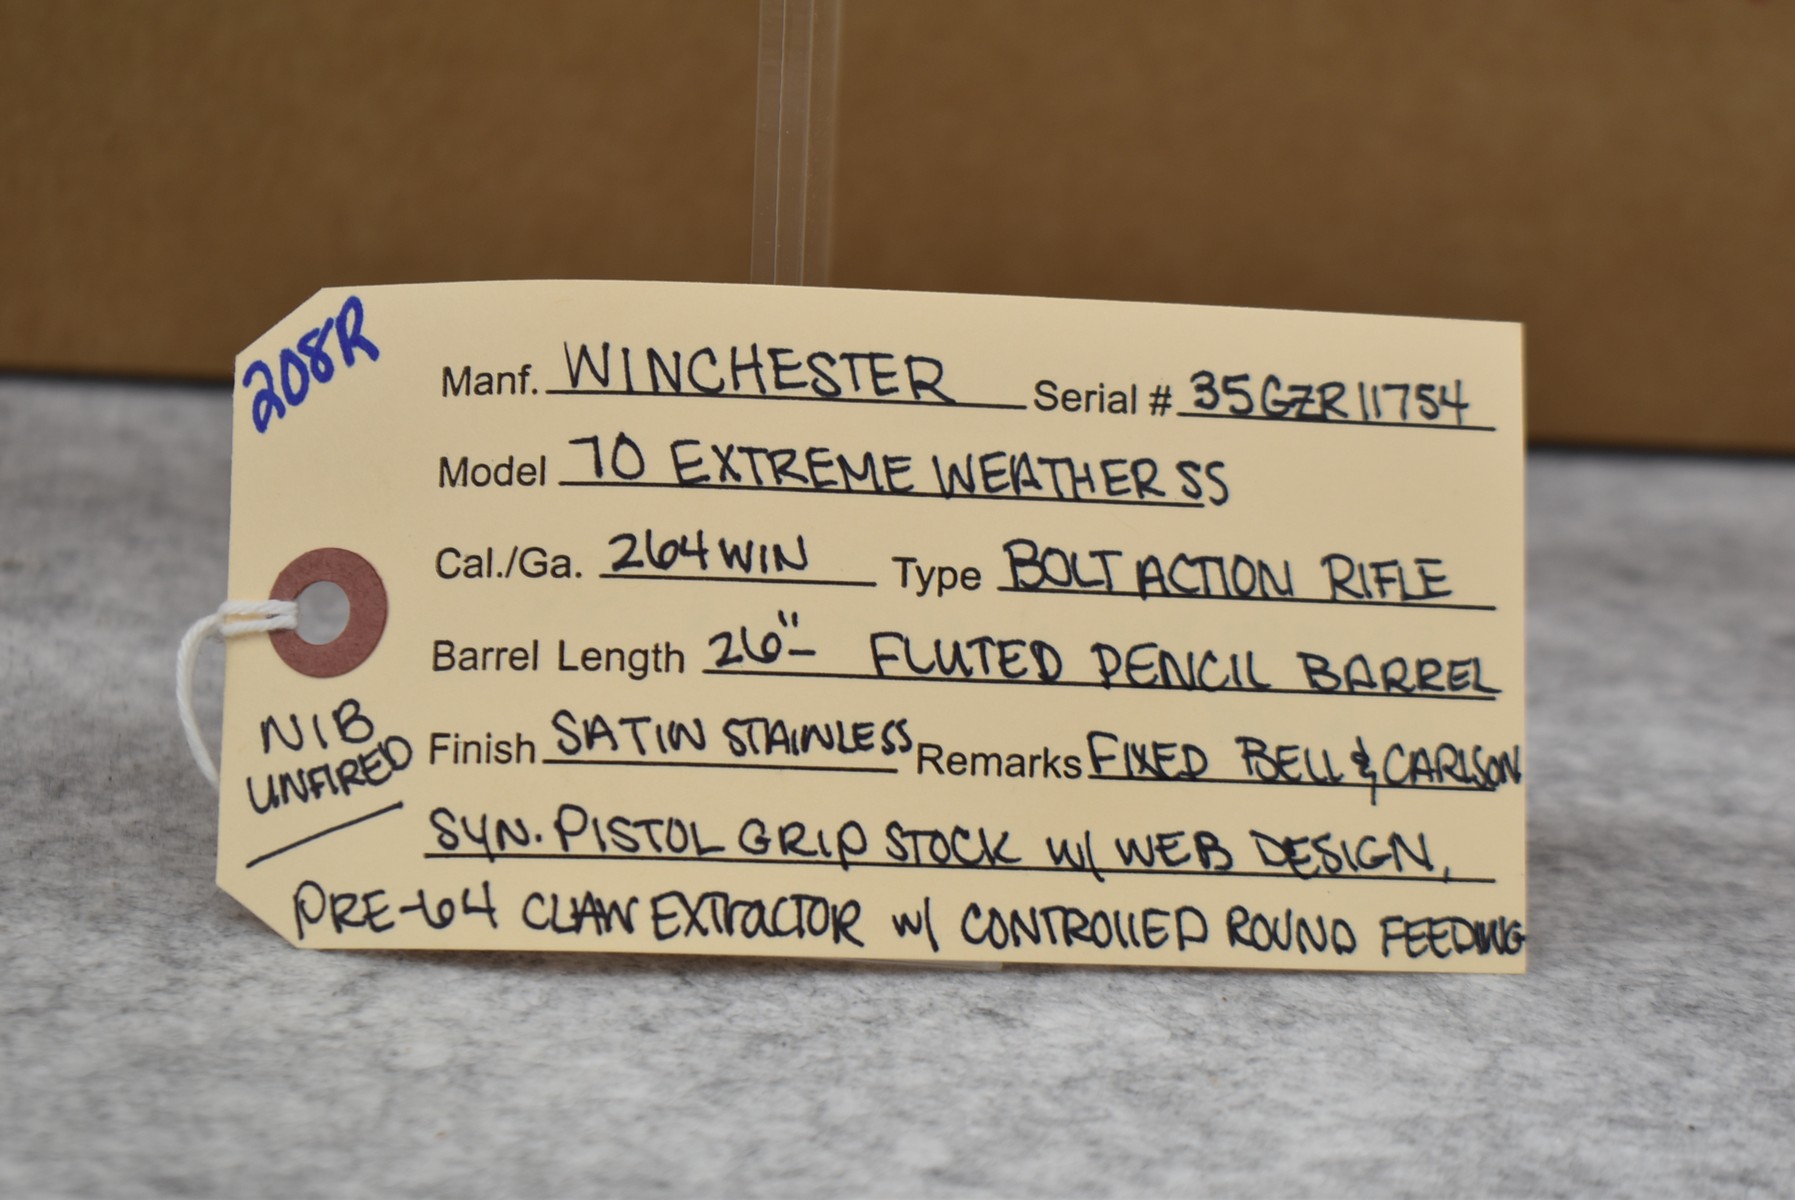 208R
Manf. WINCHESTER Serial # 35GZR11754
Model 70 EXTREME WEATHER SS
Cal./Ga. 264 WIN Type BOLT ACTION RIFLE
Barrel Length 26"- FLUTED PENCIL BARREL
Finish SATIN STAINLESS Remarks FIXED BELL & CARLSON
SYN. PISTOL GRIP STOCK W/ WEB DESIGN,
PRE-64 CLAW EXTRACTOR W/ CONTROLLED ROUND FEEDING
NIB
UNFIRED